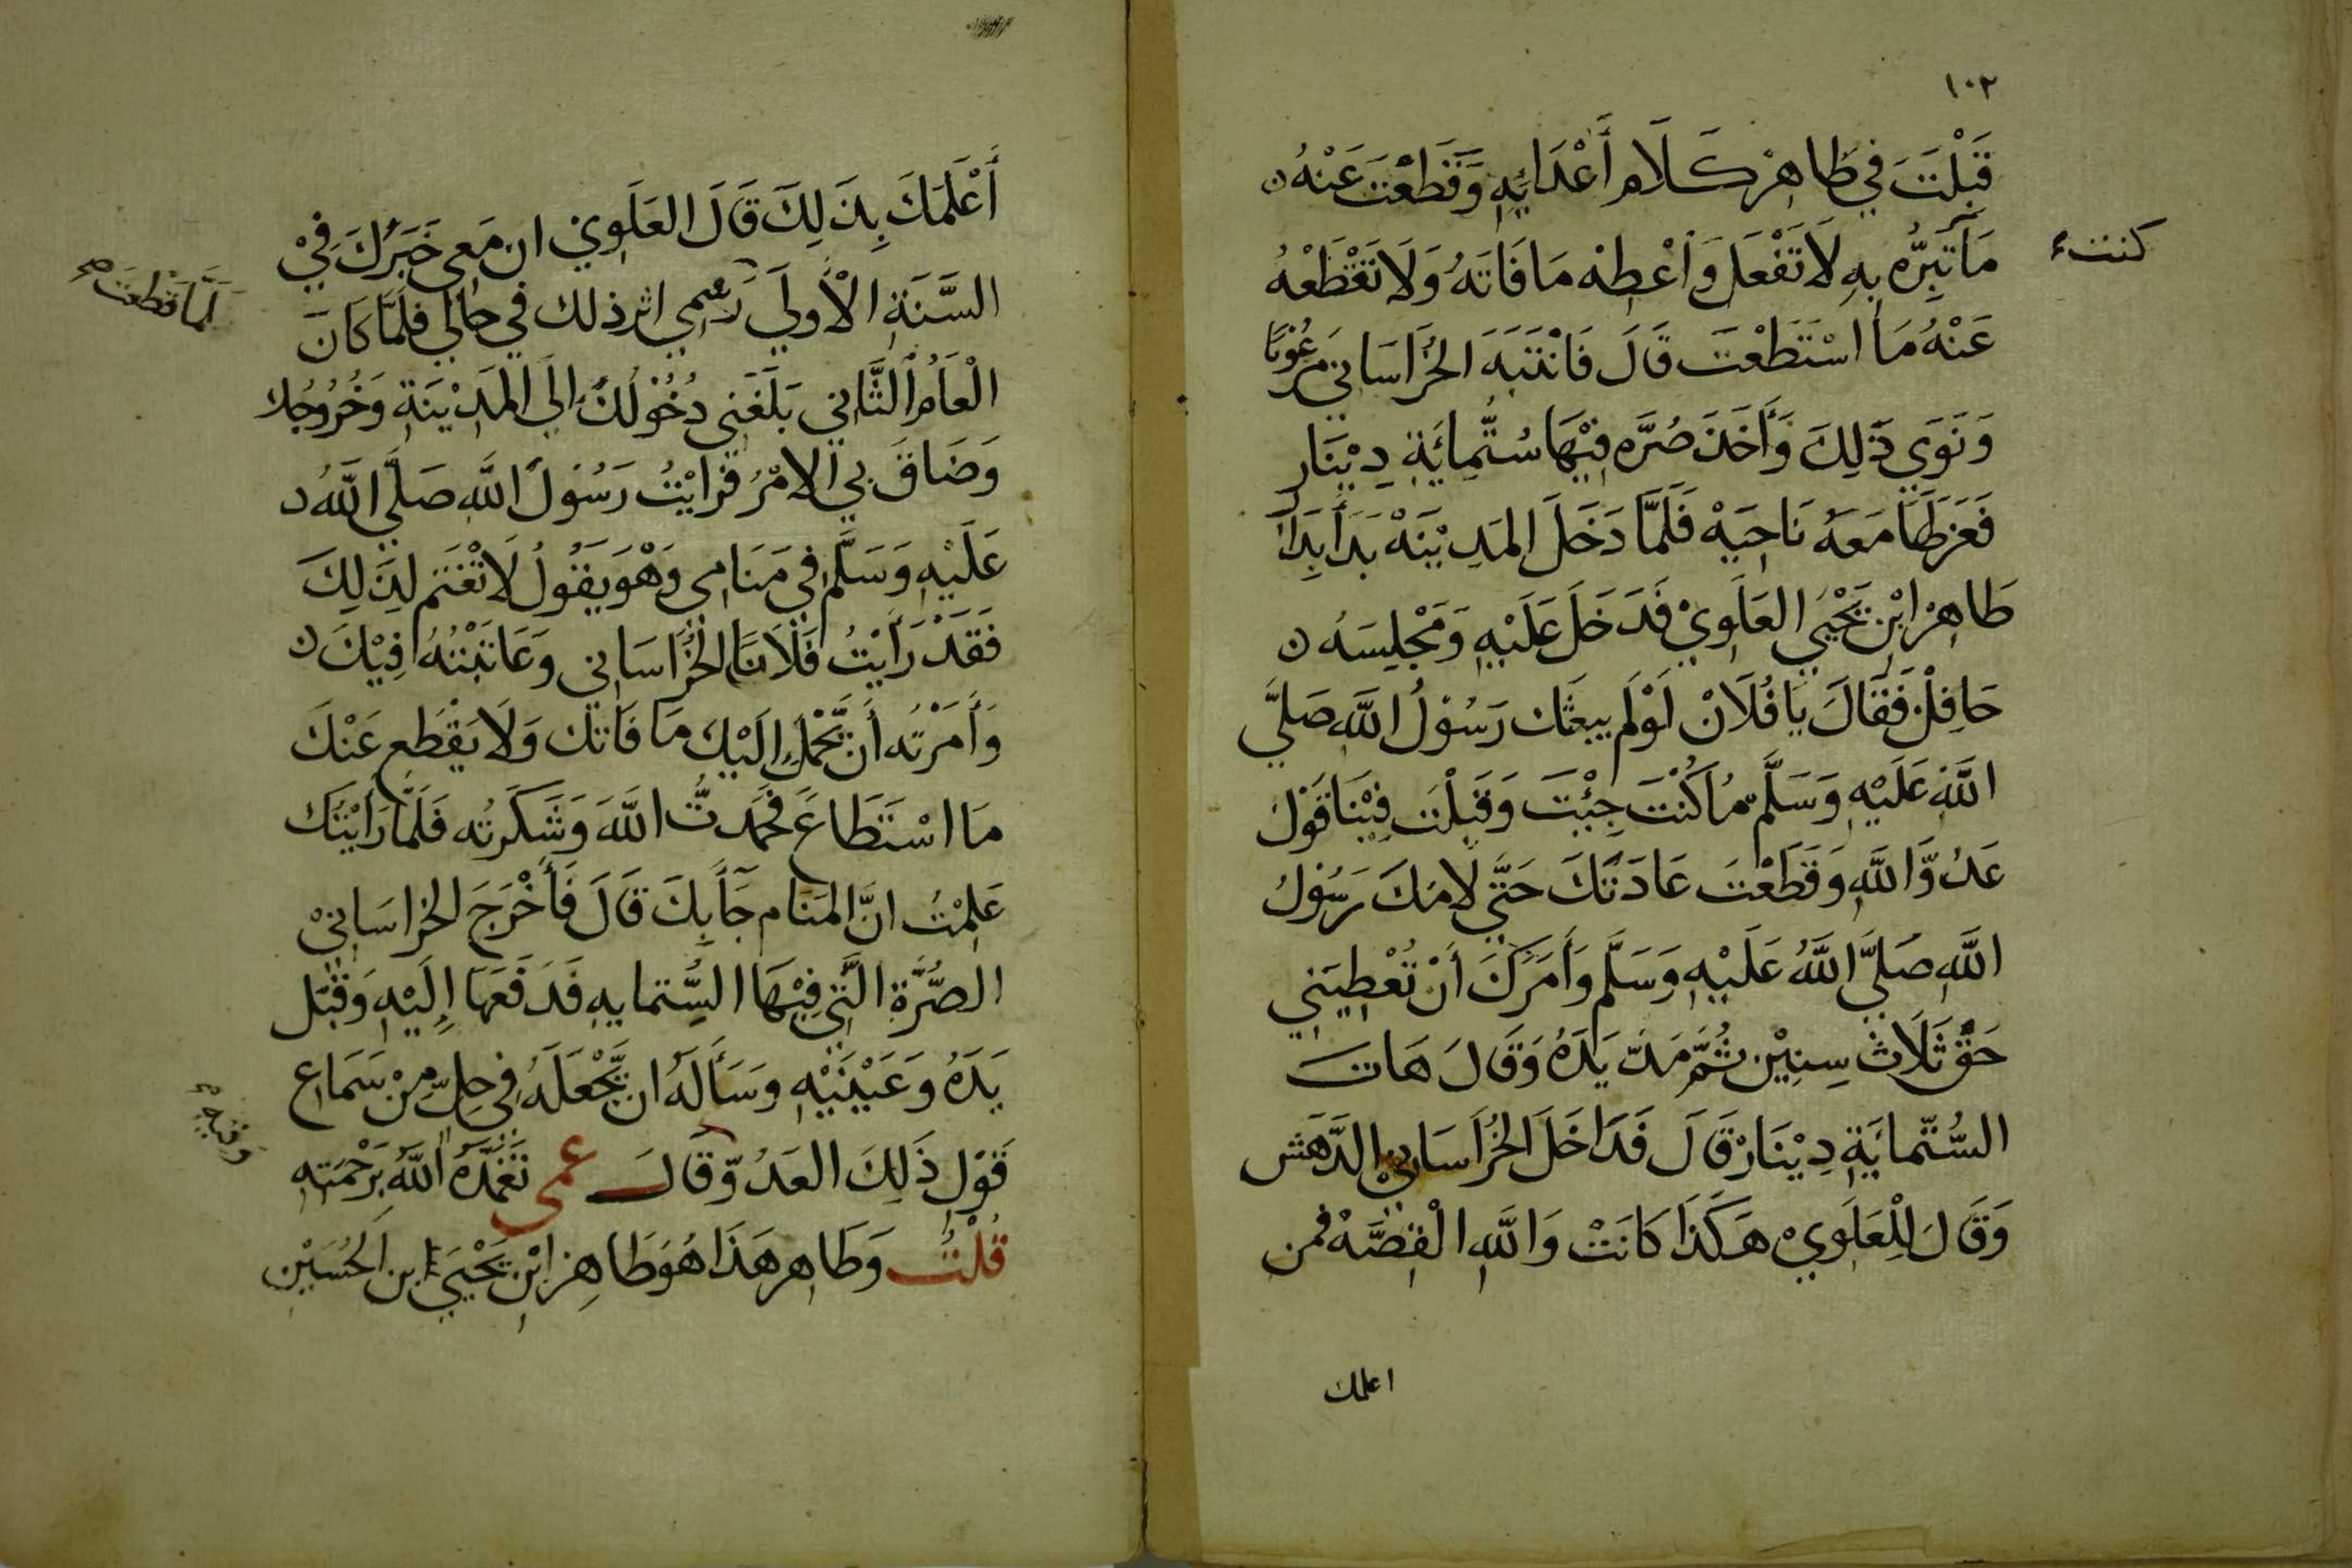 ١٠٢
قَبِلْتَ في طَاهِرْ كَلَام أَعْدَايِهِ وَقَطَعْتَ عَنْهُ
كنت
مَا تَبِرُّه بِهِ لَا تَفْعَل وَاعْطِهْ مَا فَاتَهُ وَلَا تَقْطَعْهُ
عَنْهُ مَا اسْتَطَعْتَ قَالَ فَانْتَبَهَ الخُرَاسَاني مَرعُوبًا
وَنَوَى ذَلِكَ وَأَخَذَ صُرَّه فِيْهَا سُتُّمِائَةِ دِيْنَار
فَعَزَلَهَا مَعَهُ نَاحِيَهْ فَلَمَّا دَخَلَ المَدِيْنَهْ بَدَأ بِدَارِ
طَاهِرْ ابْنِ يَحْيَى العَلَوِيْ فَدَخَلَ عَلَيْهِ وَمَجْلِسَهُ
حَافِلْ فَقَالَ يَا فُلَانْ لَوْ لَم يبعثَك رَسُوْلُ اللَّهِ صَلَّى
اللَّه عَلَيْهِ وَسَلَّم مَا كُنْتَ جِئْتَ وَقَبِلْتَ فِيْنَا قَوْلَ
عَدُوِّ اللَّهِ وَقَطَعْتَ عَادَتَكَ حَتَّى لَامَكَ رَسُوْلُ
اللَّهِ صَلَّى اللَّهُ عَلَيْهِ وَسَلَّم وَأَمَرَكَ أَنْ تُعْطِيَنِي
حَقَّ ثَلَاث سِنِيْن ثُمَّ مَدَّ يَدَهُ وَقَالَ هَات
السُّتّمائَةِ دِيْنَارْ قَالَ فَدَاخَلَ الخُرَاسَانِيْ الدَّهَش
وَقَالَ لِلْعَلَوِيْ هَكَذَا كَانَتْ وَاللَّهِ الْقِصَّهْ فَمن
اعلمك
أَعْلَمَكَ بِذَلِكَ قَالَ العَلَوِيْ ان مَعِي خَبَرُكَ فِيْ
السَّنَةِ الْأُولَى رسمي اثر ذلك في حالي فلَمَّا كَانَ
لَمَّا قَطعتَ صح
الْعَامُ الثَّاني بَلَغَني دُخُوْلُكَ إلَى المَدِيْنَةِ وَخُرُوجُك
وَضَاقَ بيَ الامْرُ فرَايْتُ رَسُوْلَ اللَّهِ صَلَّى اللَّهُ
عَلَيْهِ وَسَلَّم في مَنَامِي وَهْوَ يَقُوْلُ لَا تَغْتَم لِذَلِكَ
فَقَدْ رَأَيْتُ فُلَانًا الخُرَاسَاني وَعَاتَبْتُهُ فِيْكَ
وَأَمَرْتُه أَن يَّحْمِلَ إِلَيْكَ مَا فَاتَك وَلَا يَقْطَع عَنْكَ
مَا اسْتَطَاعَ فَحَمَدتُّ اللَّهَ وَشَكَرتُه فَلَمَّا رَأَيْتُكَ
عَلِمْتُ انَّ المَنَام جَآ بِكَ قَالَ فَأَخْرَجَ الخراسَانِيْ
الصُّرَّةِ الَّتِي فِيْهَا السُّتمايه فَدَفَعَهَا إِلَيْهِ وَقَبَّل
يَدَهُ وَعَيْنَيْهِ وَسَأَلَهُ ان يَّجْعَلَهُ فِي حِلٍّ مِنْ سَمَاعِ
قَوْلِ ذَلِكَ العَدُوّ وَقَالَ عمي تَغَمَّدَهُ اللَّهُ بِرَحْمَتِهِ
قُلْتُ وَطَاهِر هَذَا هُوَ طَاهِر ابْنِ يَحْيَى ابن الحُسَيْن